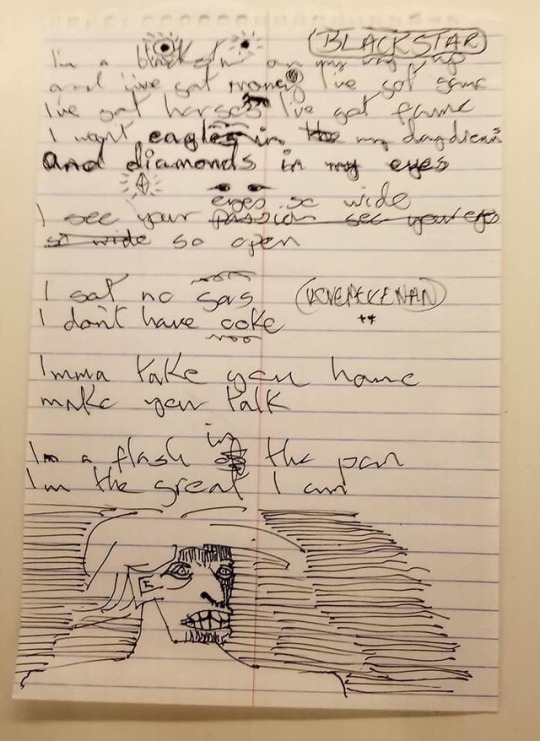 (BLACKSTAR)
I'm a blackstar on my way up
and I've got money I've got game
I've got horses I've got fame
I want eagles in the my daydreams
and diamonds in my eyes
eyes so wide
I see your passion see your eyes
so wide so open
I sat no gas
I don't have coke
Imma take you home
make you talk
in
I'm a flash of the pan
I'm the great I am
E